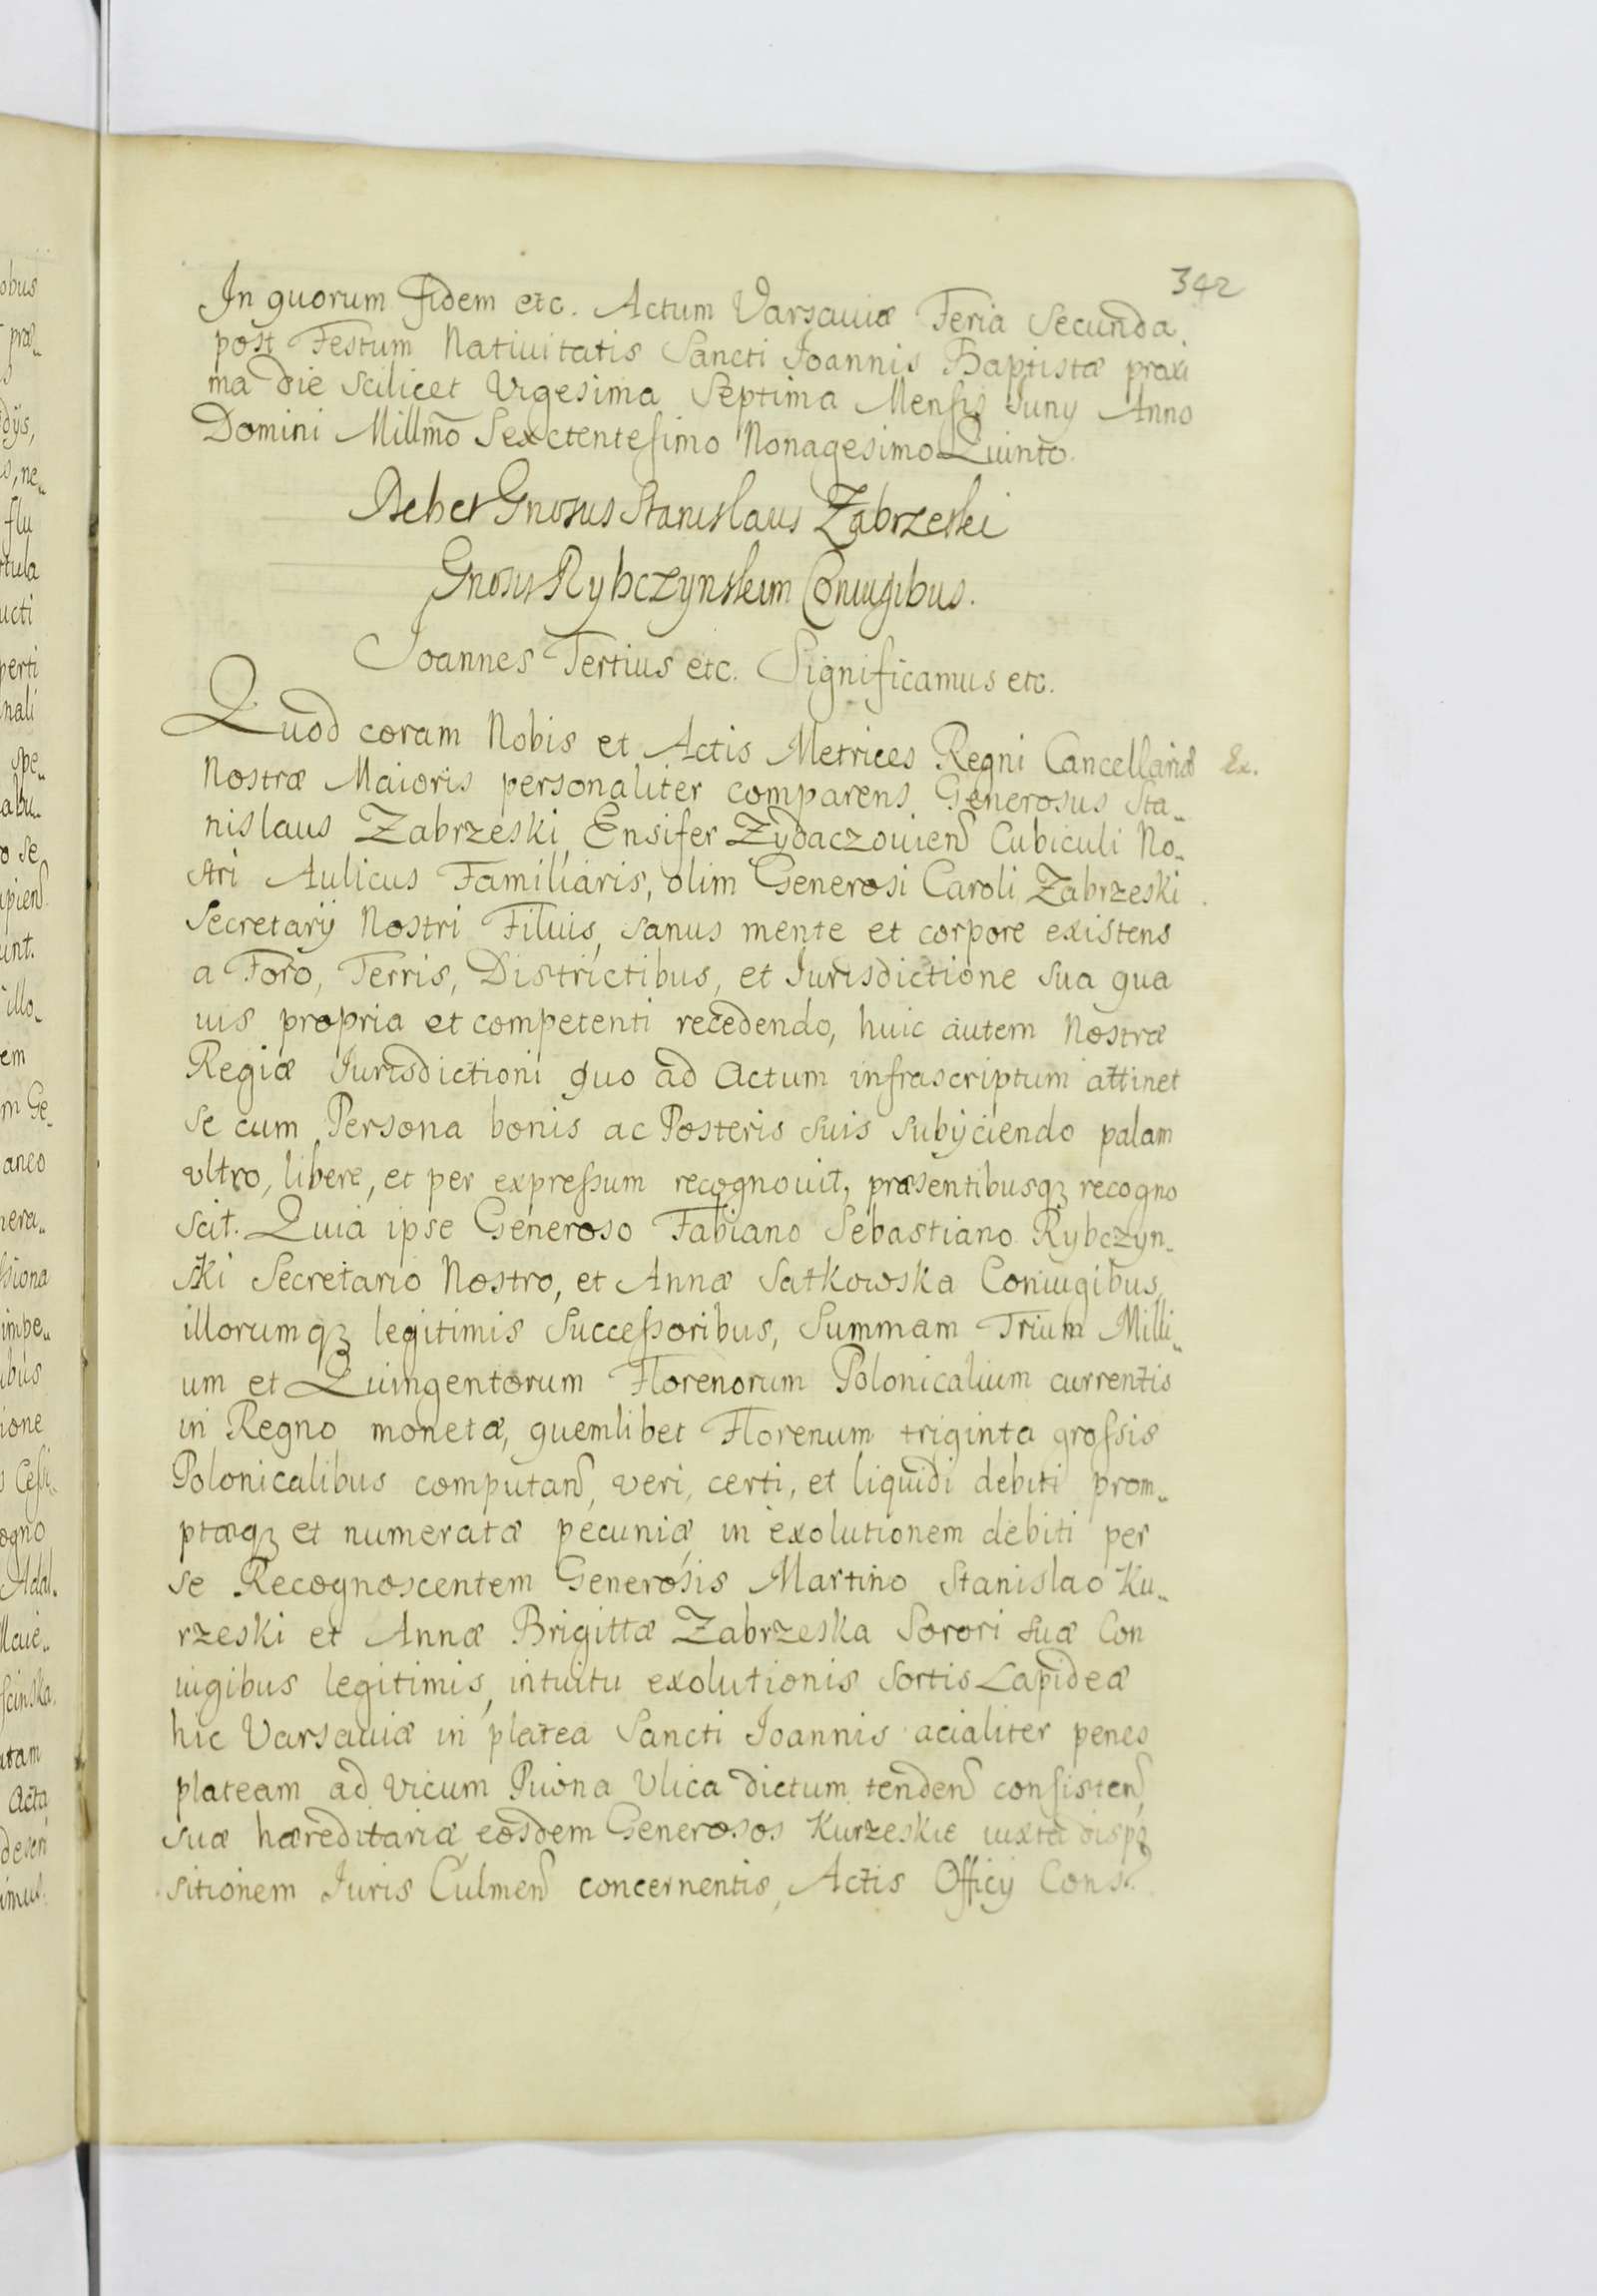 342
In quorum fidem etc. Actum Varsaviæ Feria Secunda
post Festum Nativitatis Sancti Joannis Baptistæ proxi
ma die scilicet Vigesima Septima Mensis Juny Anno
Domini Millmo Sexctentesimo Nonagesimo Quinto.
Debet Gnosus Stanislaus Zabrzeski
Gnosis Rybczynskim Coniugibus.
Joannes Tertius etc. Significamus etc.
Quod coram Nobis et Actis Metrices Regni Cancellariæ Ex.
Nostræ Maioris personaliter comparens Generosus Sta„
nislaus Zabrzeski, Ensifer Zydaczouien Cubiculi No„
stri Aulicus Familiaris, olim Generosi Caroli Zabrzeski
Secretarij Nostri Filuis, sanus mente et corpore existens
a Foro, Terris, Districtibus, et Jurisdictione sua qua
uis propria et competenti recedendo, huic autem Nostræ
Regiæ Jurisdictioni quo ad Actum infrascriptum attinet
se cum Persona bonis ac Posteris suis subijciendo palam
vltro, libere, et per expressum recognouit, præsentibusqꝫ recogno
scit. Quia ipse Generoso Fabiano Sebastiano Rybczyn„
ski Secretario Nostro, et Annæ Satkowska Coniugibus,
illorumqꝫ legitimis Successoribus, Summam Trium Milli„
um et Quingentorum Florenorum Polonicalium currentis
in Regno monetæ, quemlibet Florenum triginta grossis
Polonicalibus computan, veri, certi, et liquidi debiti prom„
ptæqꝫ et numeratæ pecuniæ in exolutionem debiti per
se Recognoscentem Generosis Martino Stanislao Ku„
rzeski et Annæ Brigittæ Zabrzeska Sorori suæ Con
iugibus legitimis, intuitu exolutionis sortis Lapideæ
hic Varsaviæ in platea Sancti Joannis acialiter penes
plateam ad vicum Piwna Vlica dictum tenden consisten,
suæ hæreditariæ, eosdem Generosos Kurzeskie iuxta dispo
sitionem Juris Culmen concernentis, Actis Officij Cons.